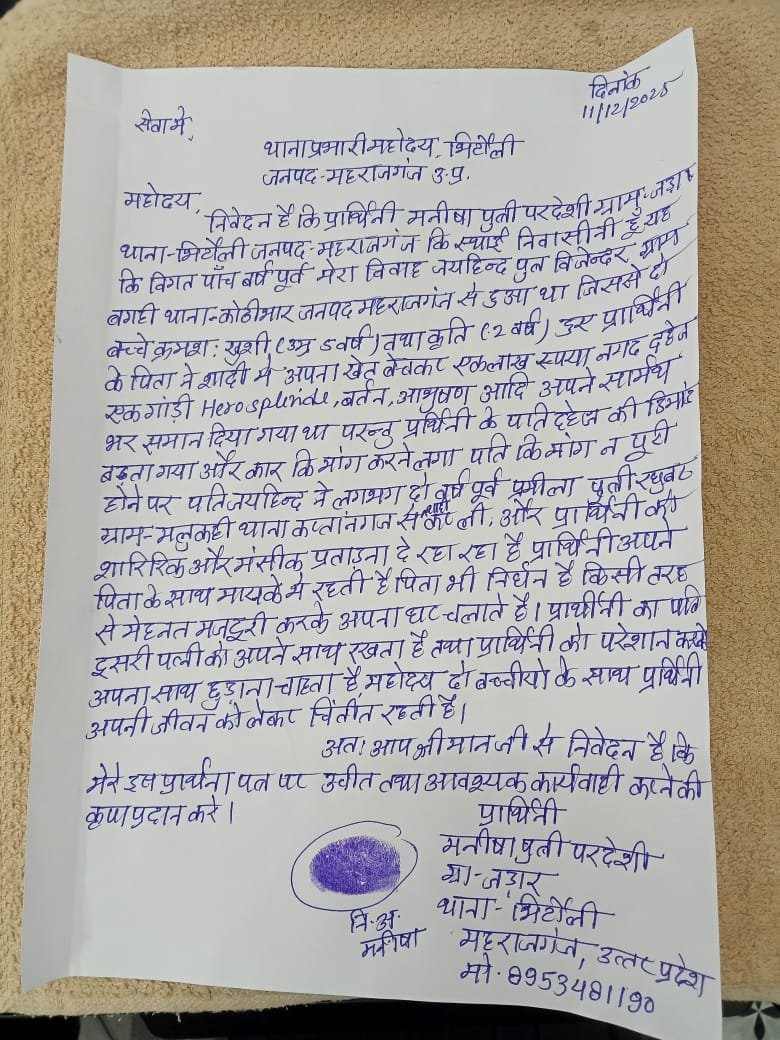 दिनांक
11/12/2025
सेवा में,
थाना प्रभारी महोदय, भिटौली
जनपद-महराजगंज उ.प्र.
महोदय,
निवेदन है कि प्रार्थिनी मनीषा पुत्री परदेशी ग्राम-जड़ार
थाना-भिटौली जनपद-महराजगंज कि स्थाई निवासीनी हूँ यह
कि विगत पाँच बर्ष पूर्व मेरा विवाह जयहिन्द पुत्र विजेन्दर ग्राम
बगही थाना-कोठीभार जनपद महराजगंज से हुआ था जिससे दो
बच्चे क्रमश: खुशी (उम्र 5 वर्ष) तथा कृति (2 वर्ष) हुए प्रार्थिनी
के पिता ने शादी मे अपना खेत बेचकर एक लाख रुपया नगद दहेज
एक गांड़ी Hero splende, बर्तन, आभुषण आदि अपने सार्मथ
भर समान दिया गया था परन्तु प्रर्थिनी के पति दहेज की डिमांड
बढ़ता गया और कार कि मांग करने लगा पति कि मांग न पुरी
होने पर पति जयहिन्द ने लगभग दो वर्ष पूर्व प्रमीला पुत्री रघुबर
ग्राम-मलुकही थाना कप्तांनगज से शादी कर ली, और प्रार्थिनी को
शारिरिक और मंसीक प्रताडना दे रहा रहा है प्रार्थिनी अपने
पिता के साथ मायके मे रहती है पिता भी निर्धन है किसी तरह
से मेहनत मजदूरी करके अपना घर चलाते है। प्रार्थीनी का पति
दूसरी पत्नी को अपने साथ रखता है तथा प्रार्थिनी को परेशान करके
अपना साथ छुडाना चाहता है महोदय दो बच्चीयो के साथ प्रर्थिनी
अपनी जीवन को लेकर चिंतीत रहती है।
अत: आप श्रीमान जी से निवेदन है कि
मेरे इस प्रार्थना पत्र पर उचीत तथा आवश्यक कार्यवाही करने की
कृपा प्रदान करे।
प्रार्थिनी
मनीषा पुत्री परदेशी
ग्रा-जड़ार
थाना-भिटौली
महराजगंज, उत्तर प्रदेश
मो. 8953481190
नि.अ.
मनीषा